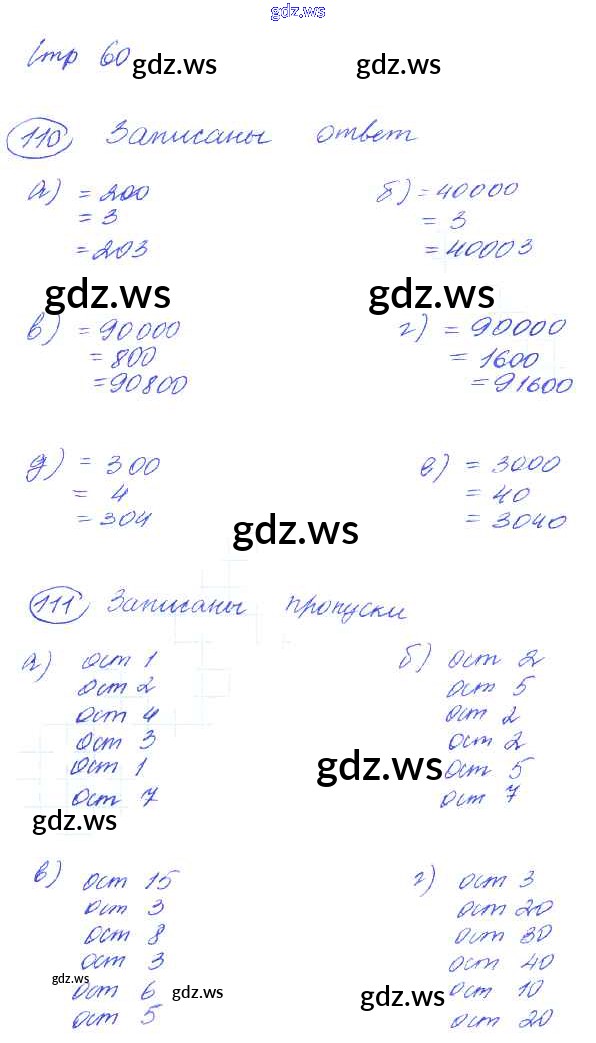 gdz.ws
стр 60
gdz.ws gdz.ws
110 Записаны ответ
а) = 200 б) = 40000
= 3 = 3
= 203 = 40003
gdz.ws gdz.ws
в) = 90000 г) = 90000
= 800 = 1600
= 90800 = 91600
д) = 300 е) = 3000
= 4 = 40
= 304 = 3040
gdz.ws
111 Записаны пропуски
а) ост 1 б) ост 2
ост 2 ост 5
ост 4 ост 2
ост 3 ост 2
ост 1 gdz.ws ост 5
ост 7 ост 7
gdz.ws
в) ост 15 г) ост 3
ост 3 ост 20
ост 8 ост 30
ост 3 ост 40
gdz.ws
ост 6 gdz.ws gdz.ws ост 10
ост 5 ост 20